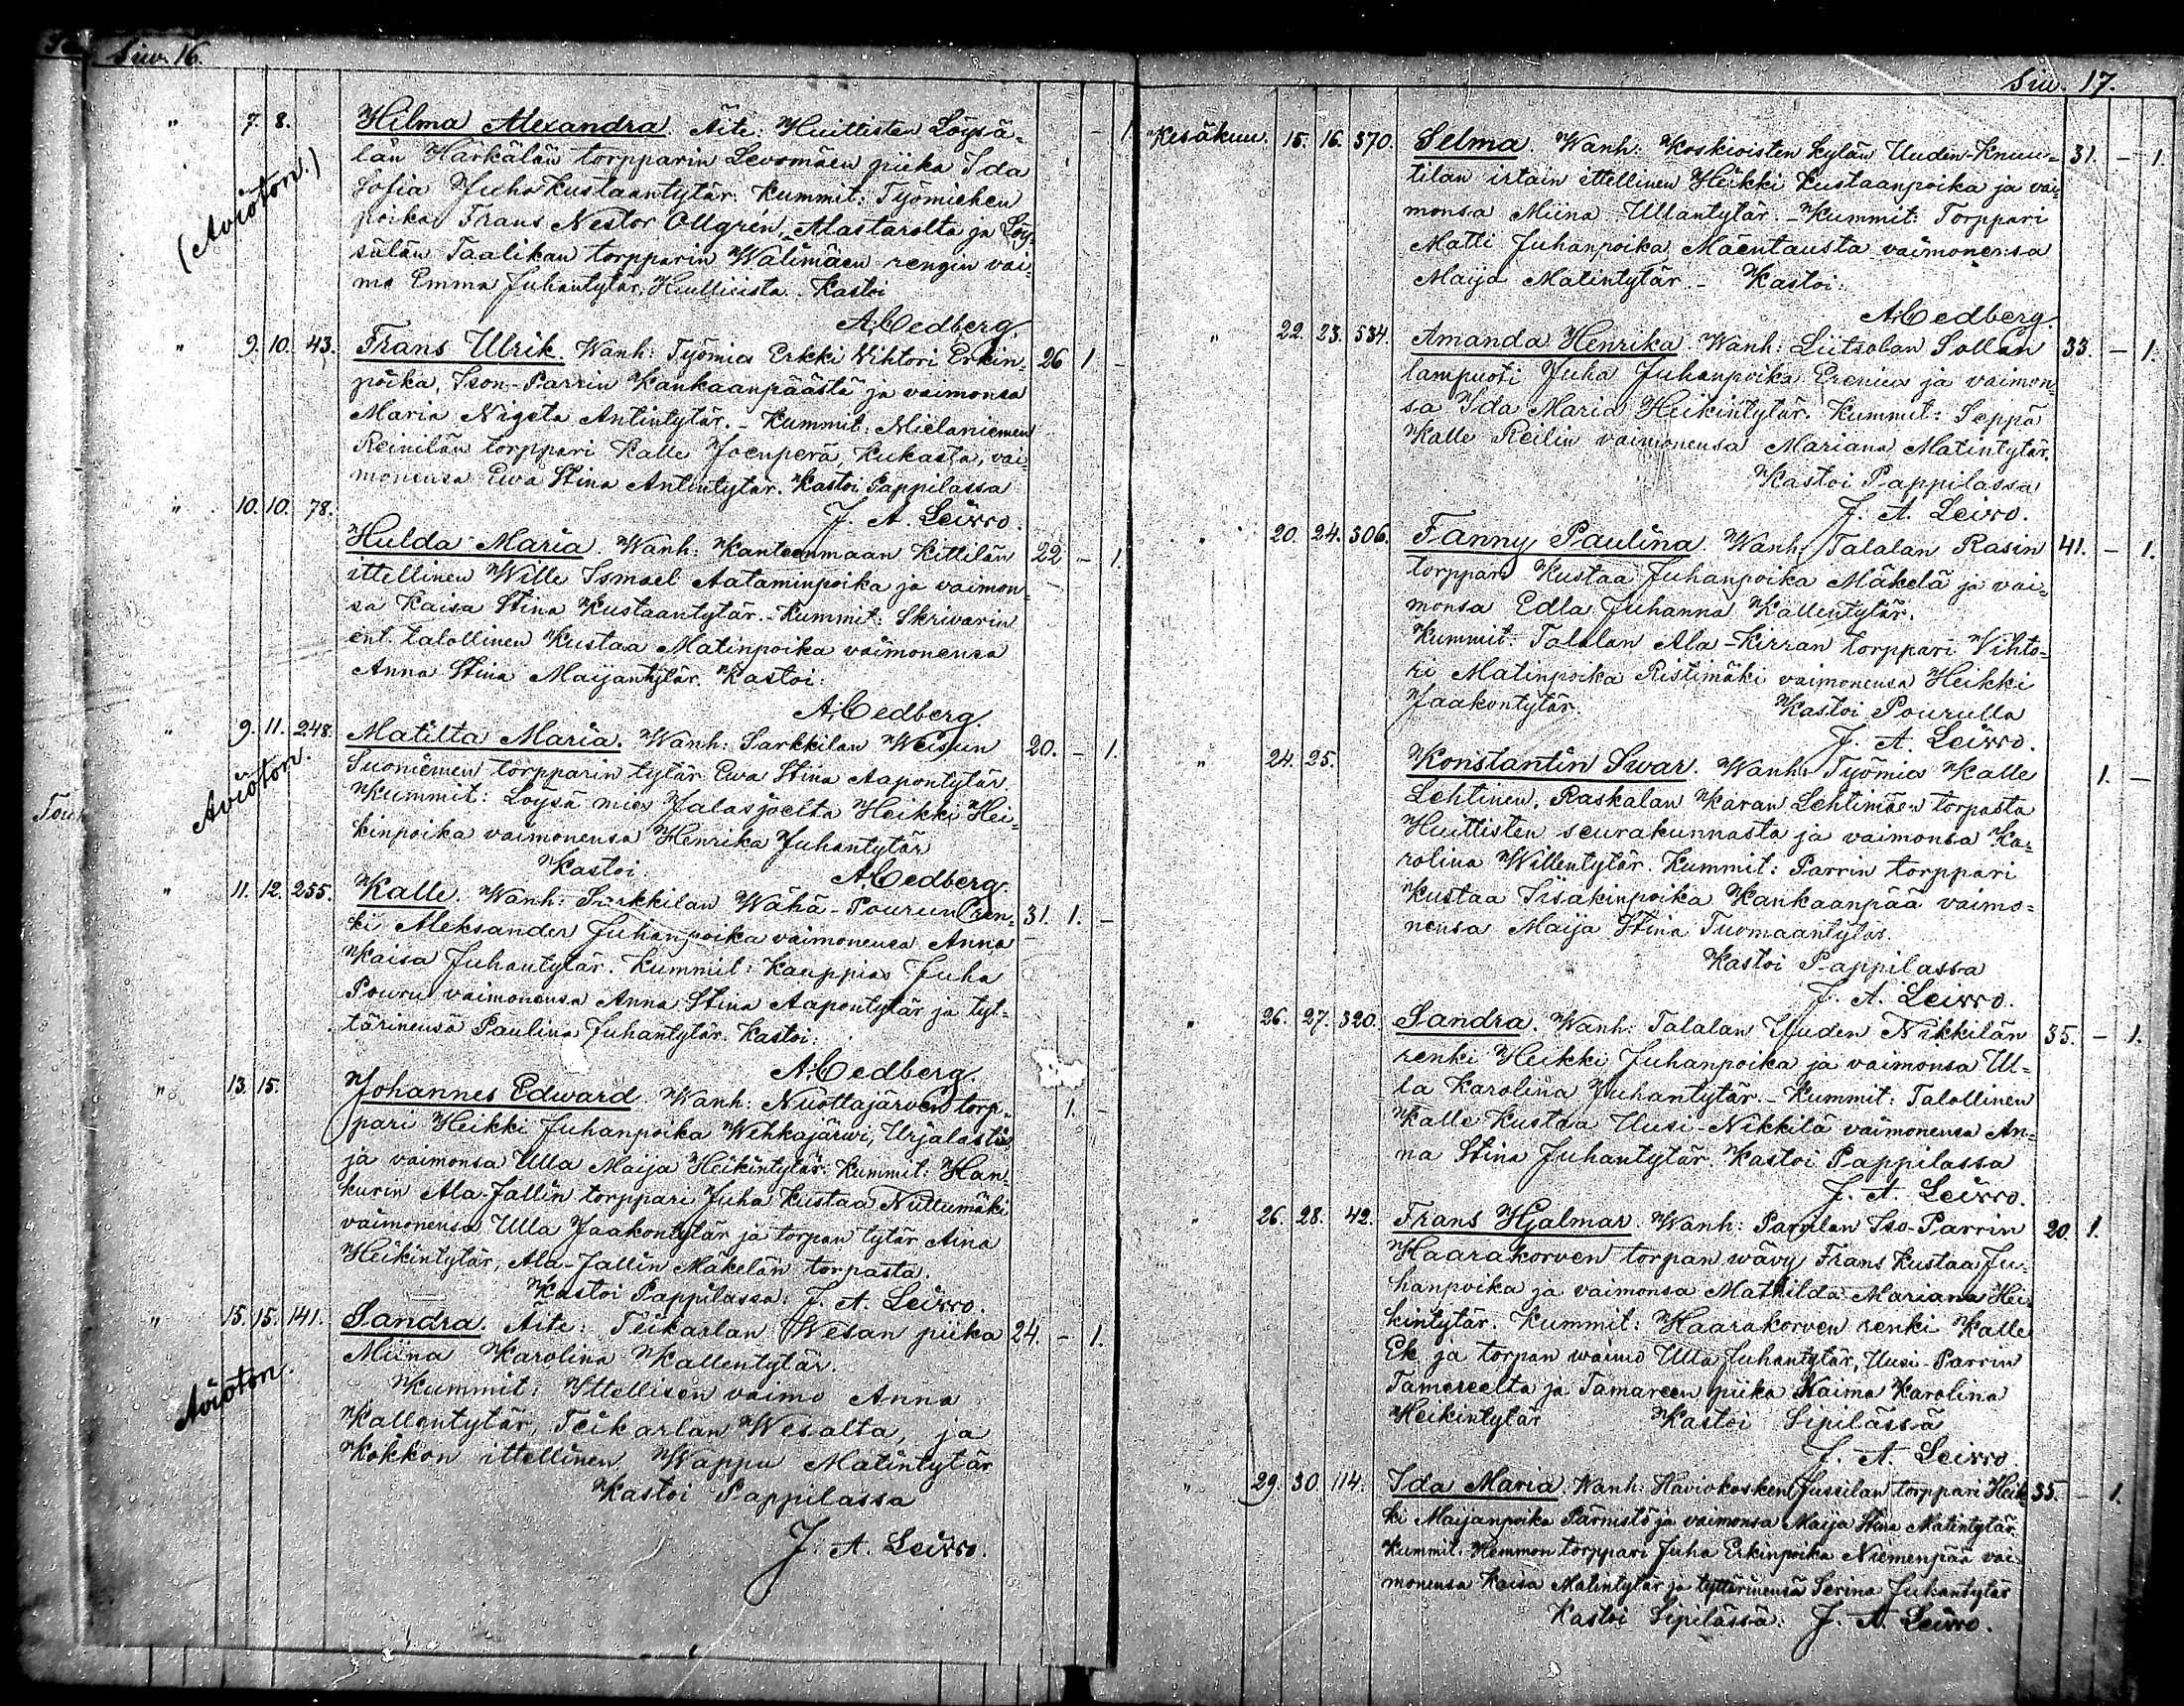 Siw. 16.
" 7. 8. Hilma Alexandra. Äite: Huittisten Löysä- - 1.
(Avioton.)
län Härkälän torpparin Levomäen piika Ida
Sofia Juha Kustaantytär. Kummit: Työmiehen
poika Frans Nestor Ollgrén, Alastarolta ja Löy-
sälän Taalikan torpparin Wälimäen rengin vai-
mo Emma Juhantytär, Huittisista. Kastoi
A. Cedberg.
" 9. 10. 43. Frans Ulrik. Wanh: Työmies Erkki Wihtori Erkin- 26 1 -
poika, Ison-Parrin Kankaanpäästä ja vaimonsa
Maria Nigeta Antintytär. - Kummit: Mielaniemen
Reinilän torppari Kalle Joenperä, Kukasta, vai-
monensa Ewa Stina Antintytär. Kastoi Pappilassa
J. A. Leirro.
" 10. 10. 78. Hulda Maria. Wanh: Kanteenmaan Kittilän 22 - 1.
ittellinen Wille Ismael Aataminpoika ja vaimon-
sa Kaisa Stina Kustaantytär. - Kummit: Skrivarin
ent. talollinen Kustaa Matinpoika vaimonensa
Anna Stina Maijantytär. Kastoi:
A. Cedberg.
" 9. 11. 248. Matilta Maria. Wanh: Sarkkilan Weisun 20. - 1.
Avioton.
Suoniemen torpparin tytär Ewa Stina Aapontytär.
Kummit: Löysä mies Jalasjoelta Heikki Hei-
kinpoika vaimonensa Henrika Juhantytär
Kastoi: A. Cedberg.
" 11. 12. 255. Kalle. Wanh: Sarkkilan Wähä-Pourun ren- 31. 1. -
ki Aleksander Juhanpoika vaimonensa Anna
Kaisa Juhantytär. Kummit: Kauppias Juha
Pouru vaimonensa Anna Stina Aapontytär ja tyt-
tärinensä Paulina Juhantytär. Kastoi:
A. Cedberg.
" 13. 15. Johannes Edward. Wanh: Nuottajärven torp- 1. -
pari Heikki Juhanpoika Wehkajärwi, Urjalasta
ja vaimonsa Ulla Maija Heikintytär. Kummit: Han-
kurin Ala-Jallin torppari Juha Kustaa Nuttumäki
vaimonensa Ulla Jaakontytär ja torpan tytär Aina
Heikintytär, Ala-Jallin Mäkelän torpasta.
Kastoi Pappilassa: J. A. Leirro.
" 15. 15. 141. Sandra. Äite: Teikarlan Wesan piika 24. - 1.
Avioton.
Miina Karolina Kallentytär.
Kummit: Ittellisen vaimo Anna
Kallentytär, Teikarlan Wesalta, ja
Kokkon ittellinen Wappu Matintytär
Kastoi Pappilassa
J. A. Leirro.
Siw. 17.
Kesäkuu. 15. 16. 370. Selma. Wanh: Koskioisten kylän Uuden-Knuu- 31. - 1.
tilan irtain ittellinen Heikki Kustaanpoika ja vai-
monsa Miina Ullantytär. - Kummit: Torppari
Matti Juhanpoika Mäentausta vaimonensa
Maija Matintytär. - Kastoi:
A. Cedberg.
" 22. 23. 534. Amanda Henrika. Wanh: Liitsolan Sollan 33. - 1.
lampuoti Juha Juhanpoika Erenius ja vaimon-
sa Ida Maria Heikintytär. Kummit: Seppä
Kalle Reilin vaimonensa Mariana Matintytär.
Kastoi Pappilassa
J. A. Leirro.
" 20. 24. 306. Fanny Paulina. Wanh: Talalan Rasin 41. - 1.
torppari Kustaa Juhanpoika Mäkelä ja vai-
monsa Edla Juhanna Kallentytär.
Kummit: Talalan Ala-Kirran torppari Vihto-
ri Matinpoika Ristimäki vaimonensa Heikki
Jaakontytär. Kastoi Pourulla
J. A. Leirro.
" 24. 25. Konstantin Iwar. Wanh: Työmies Kalle 1. -
Lehtinen, Raskalan Karan Lehtimäen torpasta
Huittisten seurakunnasta ja vaimonsa Ka-
rolina Willentytär. Kummit: Parrin torppari
Kustaa Iisakinpoika Kankaanpää vaimo-
nensa Maija Stina Tuomaantytär.
Kastoi Pappilassa
J. A. Leirro.
" 26. 27. 320. Sandra. Wanh: Talalan Uuden Nikkilän 35. - 1.
renki Heikki Juhanpoika ja vaimonsa Ul-
la Karolina Juhantytär. - Kummit: Talollinen
Kalle Kustaa Uusi-Nikkilä vaimonensa An-
na Stina Juhantytär. Kastoi Pappilassa
J. A. Leirro.
" 26. 28. 42. Frans Hjalmar. Wanh: Parrilan Iso-Parrin 20. 1.
Haarakorven torpan wävy Frans Kustaa Ju-
hanpoika ja vaimonsa Mathilda Mariana Hei-
kintytär. Kummit: Haarakorven renki Kalle
Ek ja torpan waimo Ulla Juhantytär, Uusi-Parrin
Tamereelta ja Tamareen piika Naima Karolina
Heikintytär Kastoi Sipilässä
J. A. Leirro.
" 29. 30. 114. Ida Maria. Wanh: Haviokosken Jussilan torppari Heik- 35. - 1.
ki Maijanpoika Pärnistö ja vaimonsa Maija Stina Matintytär.
Kummit: Hemmon torppari Juha Erkinpoika Niemenpää vai-
monensa Kaisa Matintytär ja tyttärinensä Serina Juhantytär
Kastoi Sipilässä: J. A. Leirro.